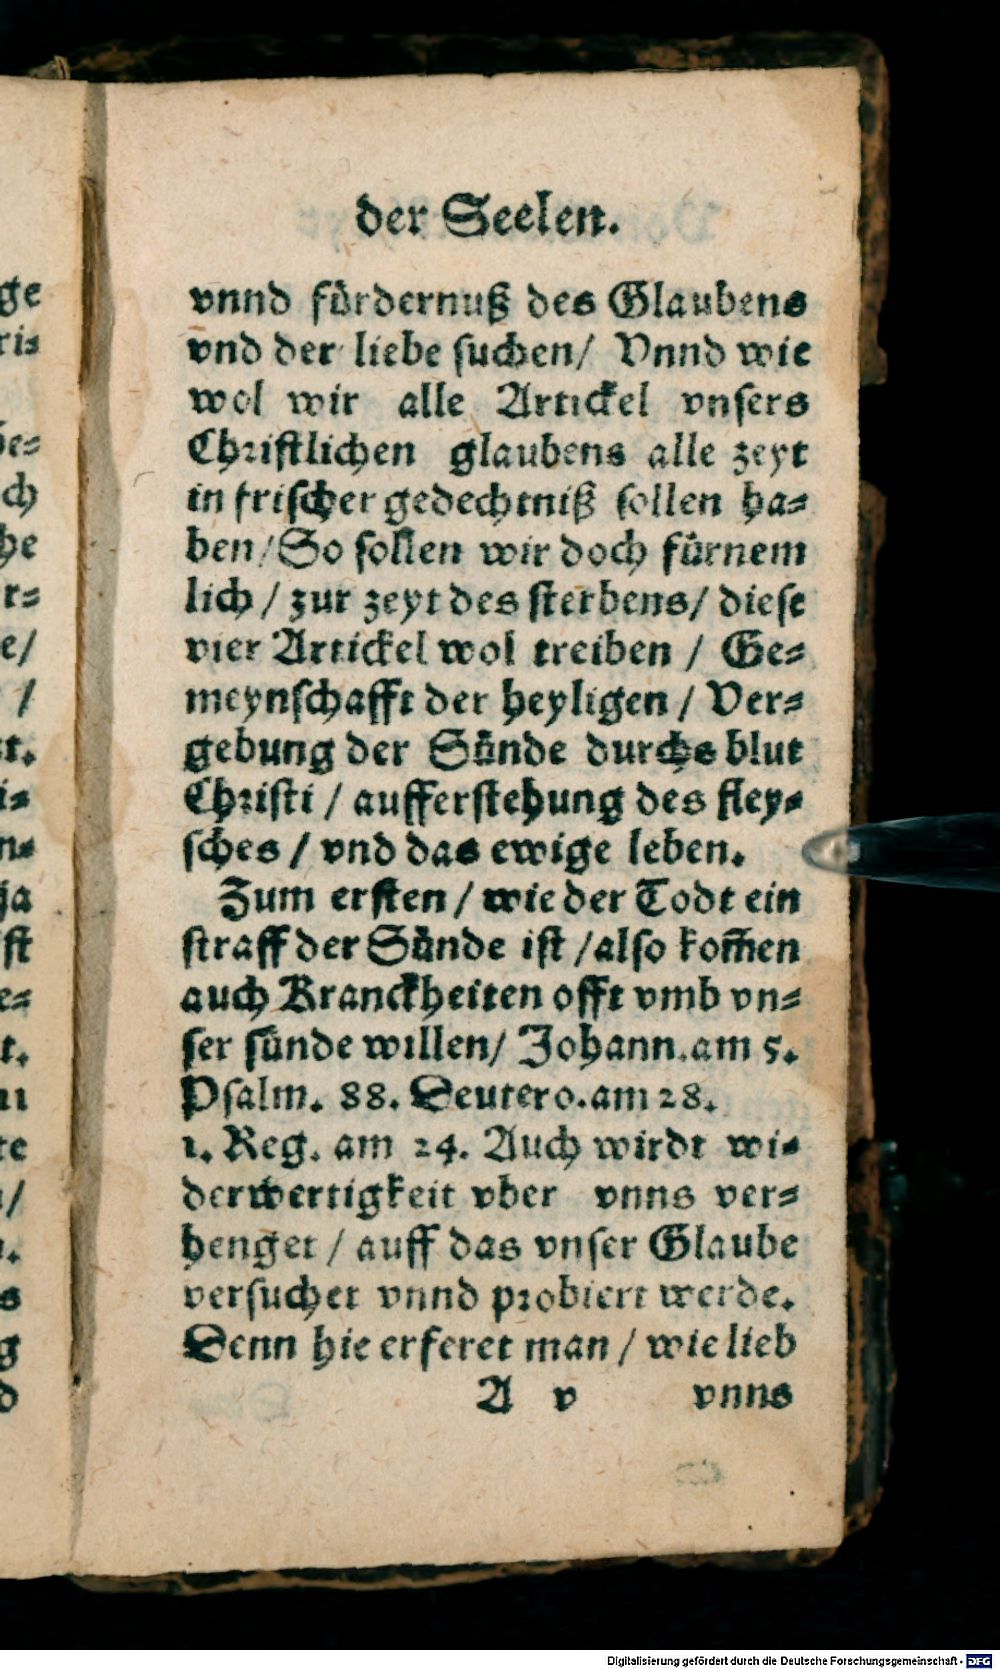 der Seelen.
vnnd fürdernuß des Glaubens
vnd der liebe suchen/ Vnnd wie
wol wir alle Artickel vnsers
Christlichen glaubens alle zeyt
in frischer gedechtniß sollen ha-
ben/So sollen wir doch fürnem
lich / zur zeyt des sterbens/ diese
vier Artickel wol treiben / Ge-
meynschafft der heyligen / Ver-
gebung der Sünde durchs blut
Christi / aufferstehung des fley-
sches / vnd das ewige leben.
Zum ersten / wie der Todt ein
straff der Sünde ist /also kom̃en
auch Kranckheiten offt vmb vn-
ser sünde willen/ Johann.am 5.
Psalm. 88. Deutero.am 28.
1. Reg. am 24. Auch wirdt wi-
derwertigkeit vber vnns ver-
henget / auff das vnser Glaube
versuchet vnnd probiert werde.
Denn hie erferet man / wie lieb
A v vnns
Digitalisierung gefördert durch die Deutsche Forschungsgemeinschaft - DFG